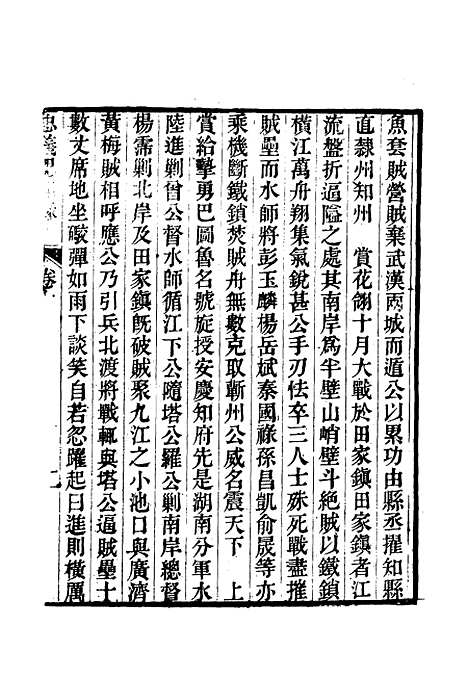 魚套賊營賊棄武漢兩城而遁公以累功由縣丞擢知縣
直隸州知州　賞花翎十月大戰於田家鎮田家鎮者江
流盤折逼隘之處其南岸爲半壁山峭壁斗絕賊以鐵鎖
橫江萬舟翔集氣銳甚公手刃怯卒三人士殊死戰盡摧
賊壘而水師將彭玉麟楊岳斌秦國祿孫昌凱俞晟等亦
乘機斷鐵鎖焚賊舟無數克取蘄州公威名震天下　上
賞給摯勇巴圖魯名號旋授安慶知府先是湖南分軍水
陸進剿曾公督水師循江下公隨塔公羅公剿南岸總督
楊霈剿北岸及田家鎮旣破賊聚九江之小池口與廣濟
黃梅賊相呼應公乃引兵北渡將戰輒與塔公逼賊壘十
數丈席地坐礮彈如雨下談笑自若忽躍起曰進則橫厲
忠義
卷